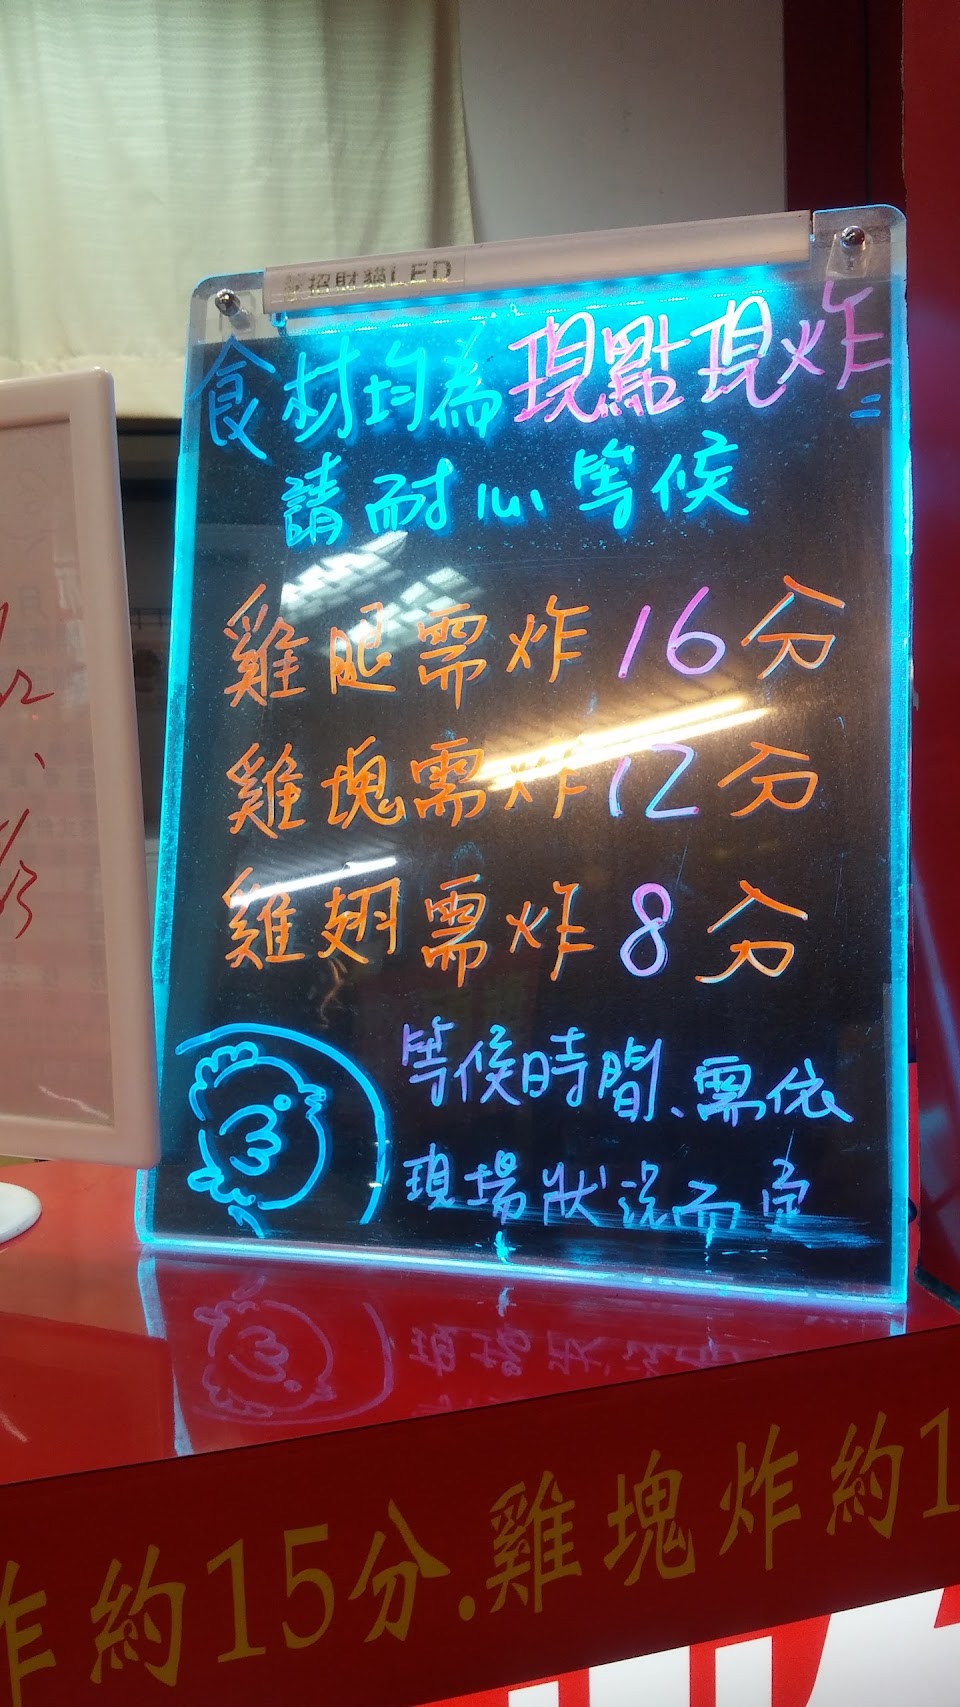 招財貓LED
食材均為現點現炸
請耐心等候
雞腿需炸16分
雞塊需炸12分
雞翅需炸8分
等候時間、需依
現場狀況而定
炸約15分.雞塊炸約1